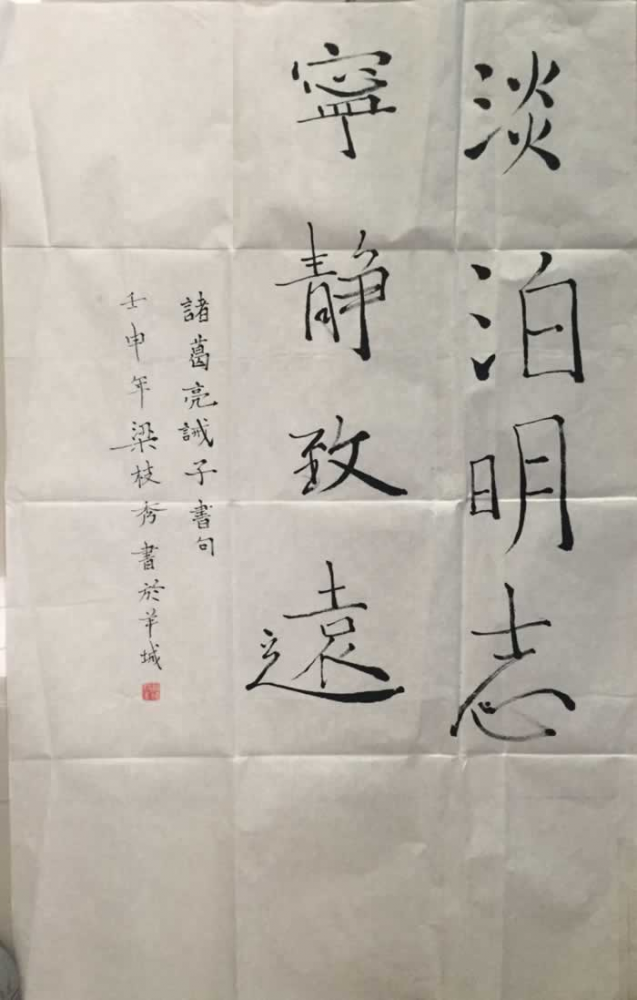 淡泊明志
寧静致遠
諸葛亮誡子書句
壬申年梁枝秀書於羊城